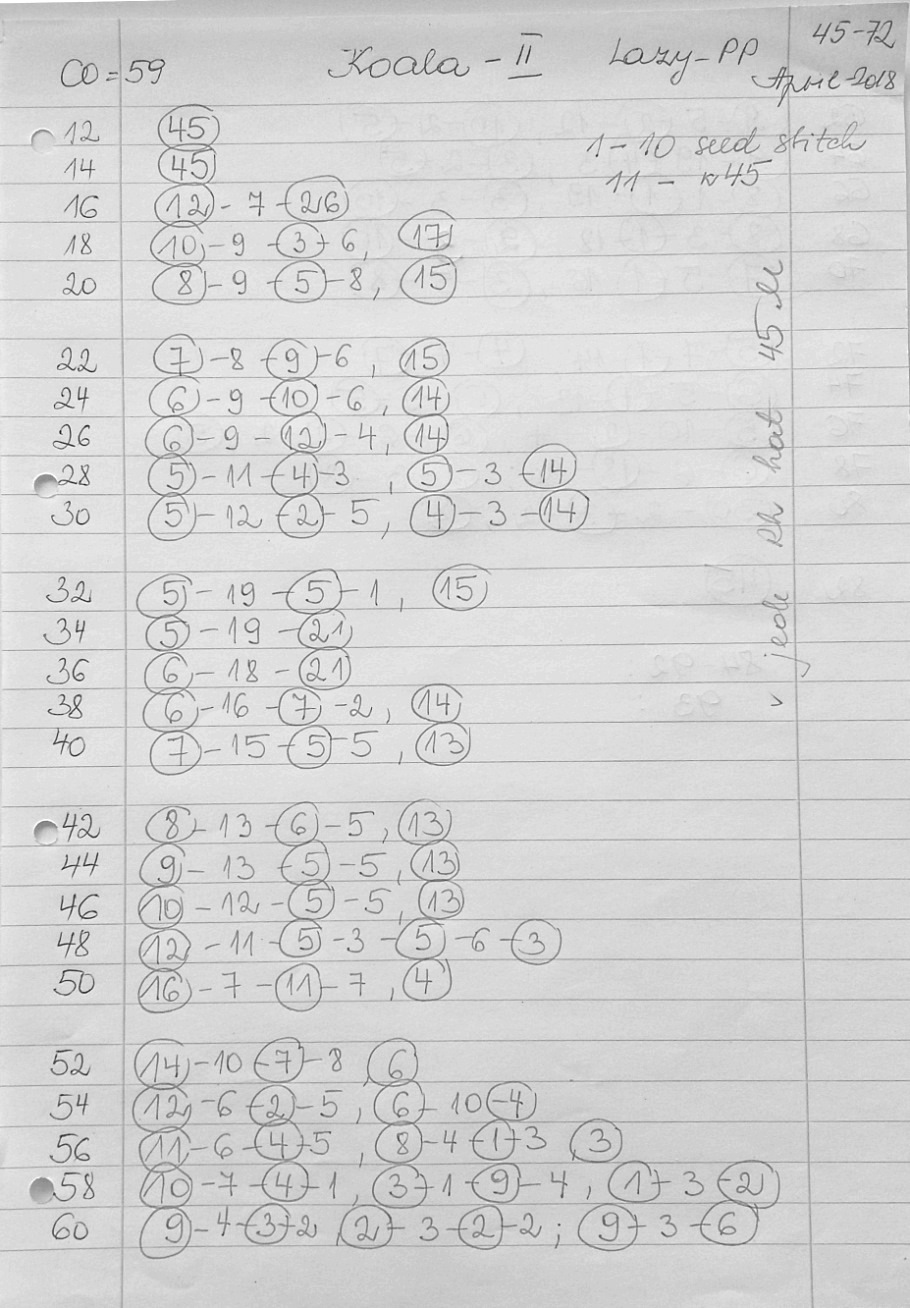 CO = 59 Koala - II Lazy-PP 45-72
April-2018
12 45
14 45
1-10 seed stitch
11 - 45
16 12 - 7 - 26
18 10 - 9 - 3 - 6, 17
20 8 - 9 - 5 - 8, 15
22 7 - 8 - 9 - 6, 15
24 6 - 9 - 10 - 6, 14
26 6 - 9 - 12 - 4, 14
28 5 - 11 - 4 - 3, 5 - 3 - 14
30 5 - 12 - 2 - 5, 4 - 3 - 14
32 5 - 19 - 5 - 1, 15
34 5 - 19 - 21
36 6 - 18 - 21
38 6 - 16 - 7 - 2, 14
40 7 - 15 - 5 - 5, 13
42 8 - 13 - 6 - 5, 13
44 9 - 13 - 5 - 5, 13
46 10 - 12 - 5 - 5, 13
48 12 - 11 - 5 - 3 - 5 - 6 - 3
50 16 - 7 - 11 - 7, 4
52 14 - 10 - 7 - 8, 6
54 12 - 6 - 2 - 5, 6 - 10 - 4
56 11 - 6 - 4 - 5, 8 - 4 - 1 - 3, 3
58 10 - 7 - 4 - 1, 3 - 1 - 9 - 4, 1 - 3 - 2
60 9 - 4 - 3 - 2, 2 - 3 - 2 - 2; 9 - 3 - 6
jede Rh hat 45 M